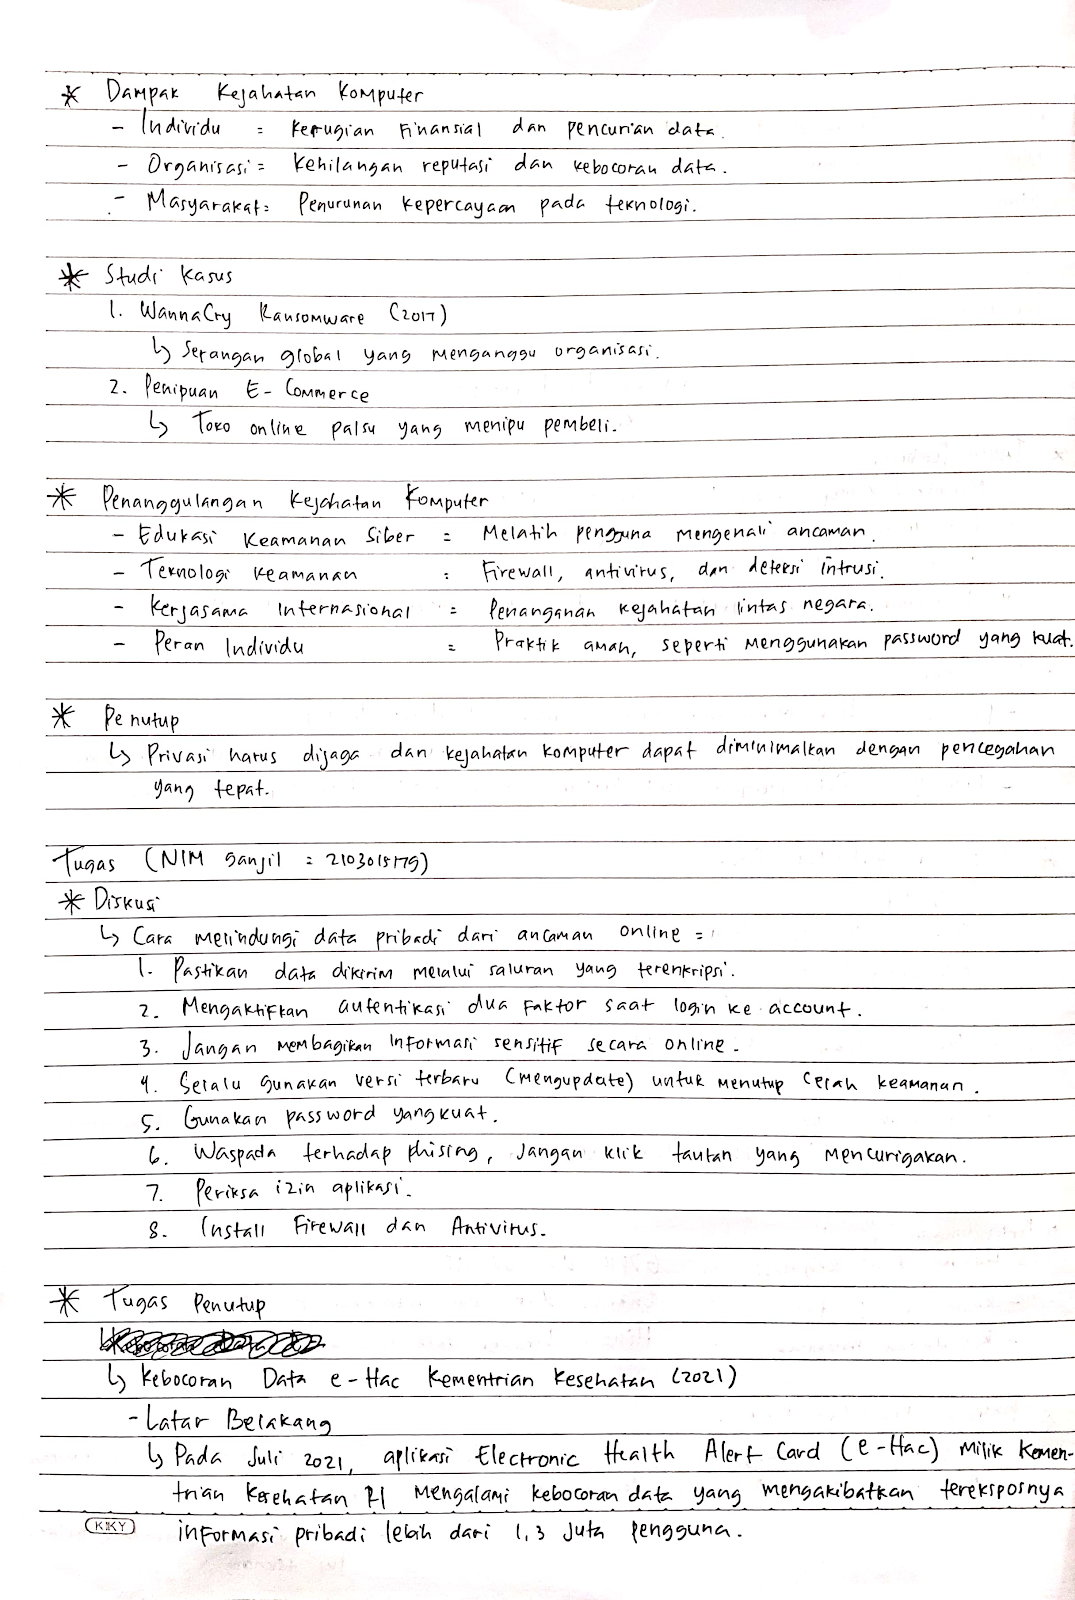 * Dampak Kejahatan Komputer
- Individu = Kerugian Finansial dan pencurian data.
- Organisasi = Kehilangan reputasi dan kebocoran data.
- Masyarakat = Penurunan kepercayaan pada teknologi.
* Studi Kasus
1. WannaCry Ransomware (2017)
↳ Serangan global yang menganggu organisasi.
2. Penipuan E-Commerce
↳ Toko online palsu yang menipu pembeli.
* Penanggulangan Kejahatan Komputer
- Edukasi Keamanan Siber = Melatih pengguna mengenali ancaman.
- Teknologi Keamanan = Firewall, antivirus, dan deteksi intrusi.
- Kerjasama Internasional = Penanganan kejahatan lintas negara.
- Peran Individu = Praktik aman, seperti menggunakan password yang kuat.
* Penutup
↳ Privasi harus dijaga dan kejahatan komputer dapat diminimalkan dengan pencegahan
yang tepat.
Tugas (NIM ganjil : 2103015179)
* Diskusi
↳ Cara melindungi data pribadi dari ancaman online =
1. Pastikan data dikirim melalui saluran yang terenkripsi.
2. Mengaktifkan autentikasi dua faktor saat login ke account.
3. Jangan membagikan informasi sensitif secara online.
4. Selalu gunakan versi terbaru (mengupdate) untuk menutup celah keamanan.
5. Gunakan password yang kuat.
6. Waspada terhadap phising, jangan klik tautan yang mencurigakan.
7. Periksa izin aplikasi.
8. Install Firewall dan Antivirus.
* Tugas Penutup
↳ Kebocoran Data e-Hac Kementrian Kesehatan (2021)
- Latar Belakang
↳ Pada Juli 2021, aplikasi Electronic Health Alert Card (e-Hac) milik Kemen-
trian Kesehatan RI mengalami kebocoran data yang mengakibatkan tereksposnya
KIKY informasi pribadi lebih dari 1,3 juta pengguna.